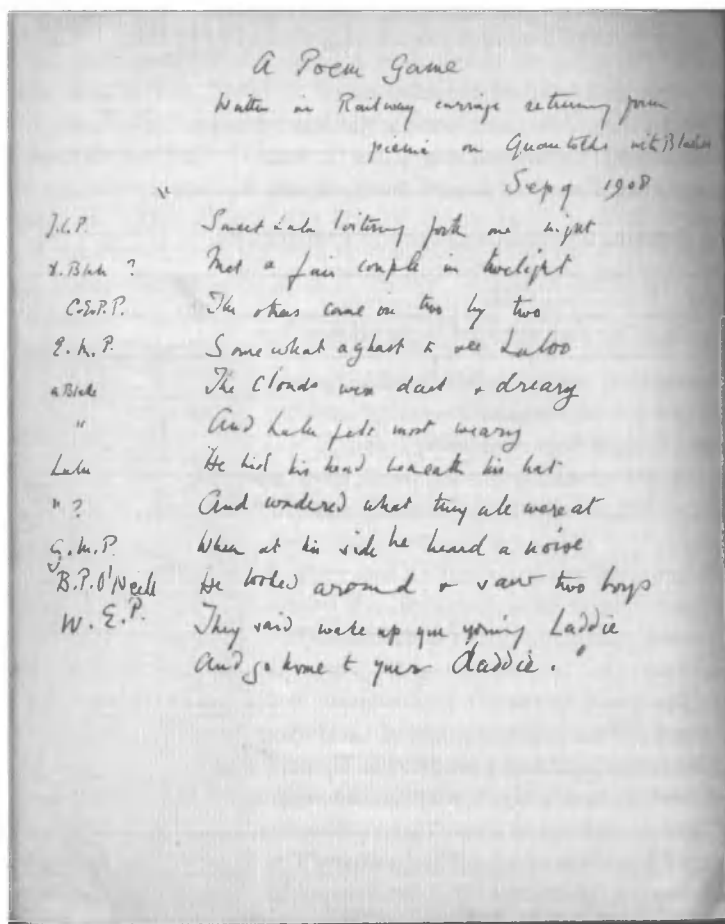 A Poem Game
Written in Railway carriage returning from
picnic on Quantolks with Blakes
Sep 9 1908
J.C.P. " Sweet Lulu loitering forth one night
Blake ? Met a fair couple in twelight
C.E.P.P. The others came on two by two
E. M. P. Somewhat aghast to see Luloo
a Blake The Clouds were dark & dreary
" And Lulu felt most weary
Lulu He hid his head beneath his hat
" ? And wondered what they all were at
G. M. P. When at his side he heard a noise
B.P. O'Neill He looked around & saw two boys
W. E. P. They said wake up you young Laddie
And go home to your daddie. "